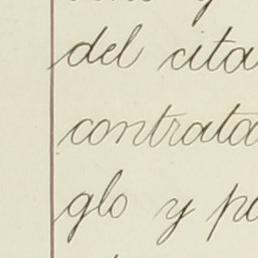 del cita
contrata
glo y p